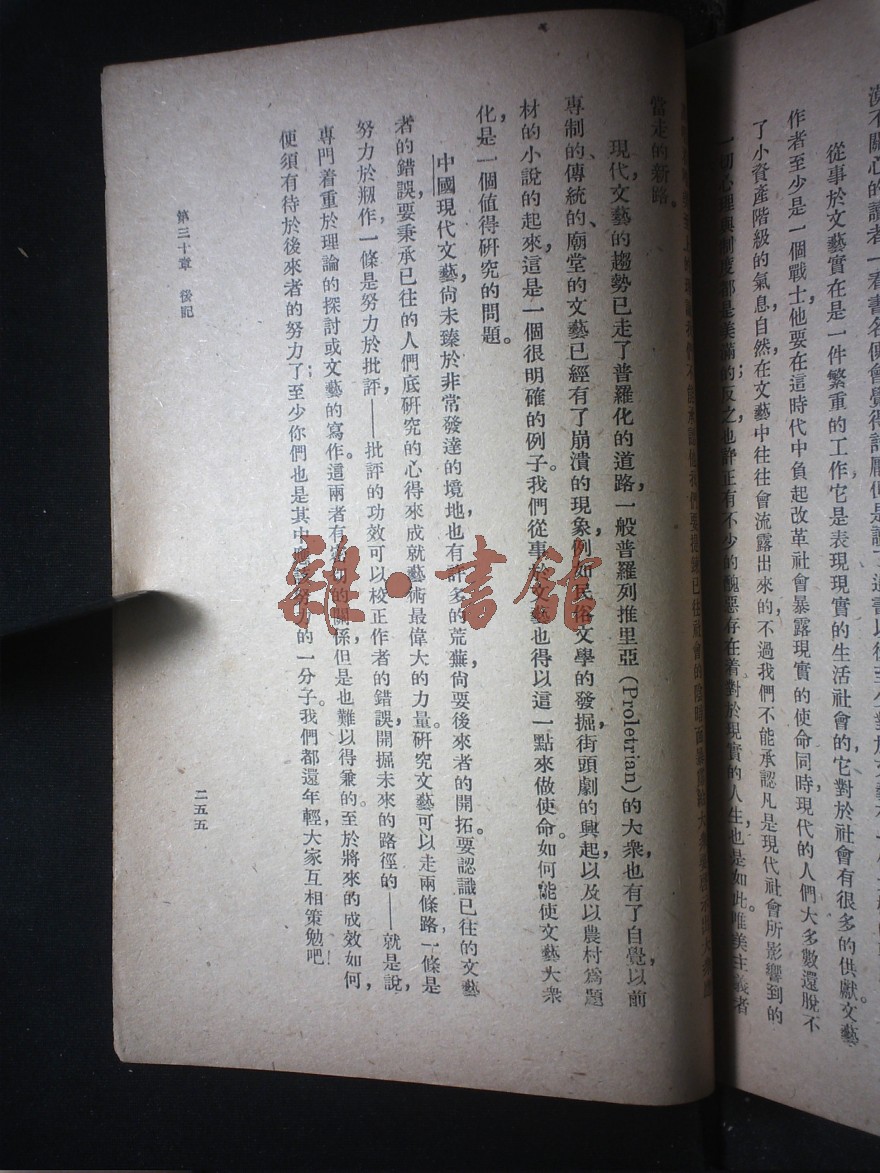 從事於文藝實在是一件繁重的工作，它是表現現實的生活社會的，它對於社會有很多的供獻。文藝
作者至少是一個戰士，他要在這時代中負起改革社會暴露現實的使命，同時，現代的人們大多數還脫不
了小資產階級的氣息，自然在文藝中往往會流露出來的，不過我們不能承認凡是現代社會所影響到的
一切心理與制度都是美滿的；反之，也許正有不少的醜惡存在着。對於現實的人生，也是如此。唯美主義者
當走的新路。
現代文藝的趨勢已走了普羅化的道路，一般普羅列推里亞（Proletrian）的大衆也有了自覺，以前
專制的、傳統的、廟堂的文藝已經有了崩潰的現象，例如民俗文學的發掘，街頭劇的興起，以及以農村爲題
材的小說的起來，這是一個很明確的例子。我們從事於文藝也得以這一點來做使命。如何能使文藝大衆
化，是一個值得研究的問題。
中國現代文藝尙未臻於非常發達的境地，也有許多的荒蕪，尙要後來者的開拓。要認識已往的文藝
者的錯誤，要秉承已往的人們底研究的心得，來成就藝術最偉大的力量。研究文藝可以走兩條路，一條是
努力於剏作，一條是努力於批評，——批評的功效可以校正作者的錯誤，開掘未來的路徑的——就是說，
專門着重於理論的探討或文藝的寫作。這兩者有密切的關係，但是也難以得兼的。至於將來的成效如何，
便須有待於後來者的努力了；至少你們也是其中應該努力的一分子。我們都還年輕，大家互相策勉吧！
第三十章　後記
二五五
雜·書館